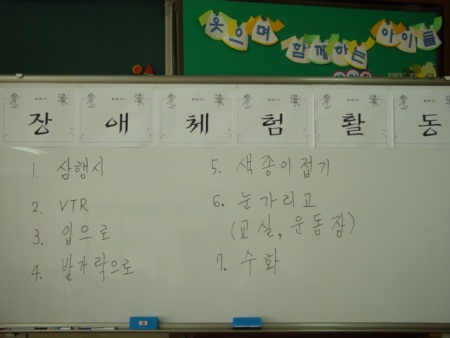 웃으며 함께하는 아이들
장애체험활동
1. 삼행시
2. VTR
3. 입으로
4. 발가락으로
5. 색종이접기
6. 눈가리고
(교실, 운동장)
7. 수화